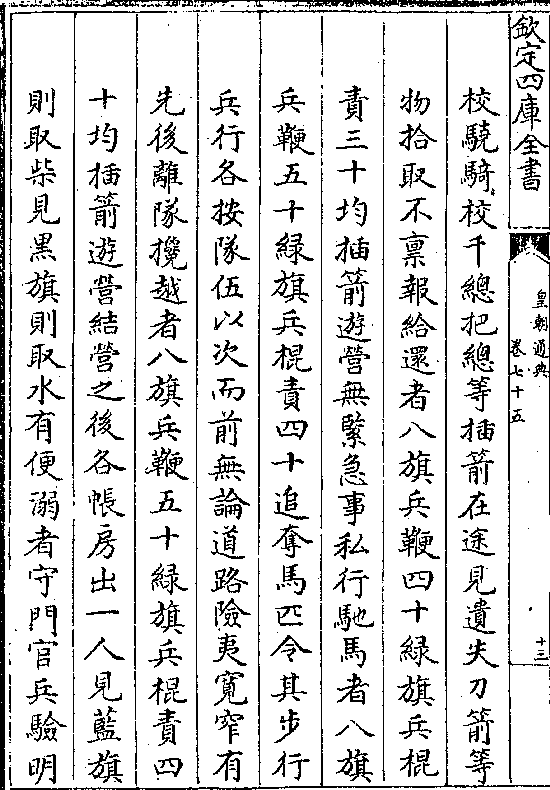 欽定四庫全書
皇朝通典
卷七十五
十三
校驍騎校千總把總等插箭在途見遺失刀箭等
物拾取不禀報給還者八旗兵鞭四十綠旗兵棍
責三十均插箭遊營無緊急事私行馳馬者八旗
兵鞭五十綠旗兵棍責四十追奪馬匹令其步行
兵行各按隊伍以次而前無論道路險夷寬窄有
先後離隊攙越者八旗兵鞭五十綠旗兵棍責四
十均插箭遊營結營之後各帳房出一人見藍旗
則取柴見黑旗則取水有便溺者守門官兵驗明